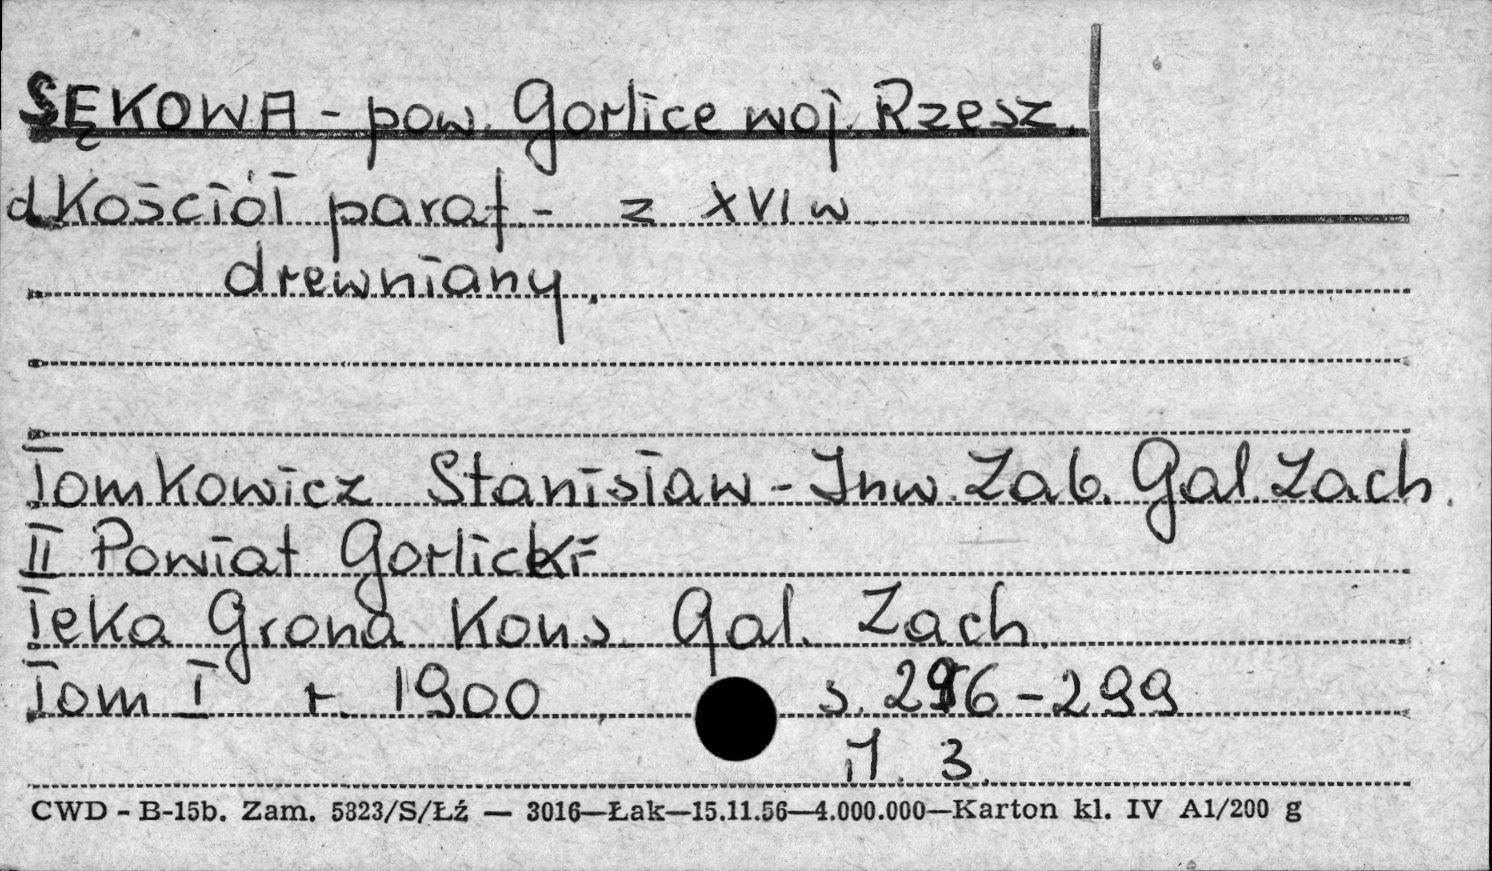 SĘKOWA - pow. Gorlice woj. Rzesz.
d Kościół paraf - z XVI w
drewniany.
Tomkowicz Stanisław - Inw. Zab. Gal. Zach.
II Powiat Gorlicki
Teka Grona Kons. Gal. Zach.
Tom I r. 1900 s. 296-299
il. 3.
CWD - B-15b. Zam. 5823/S/Łź — 3016—Łak—15.11.56—4.000.000—Karton kl. IV A1/200 g